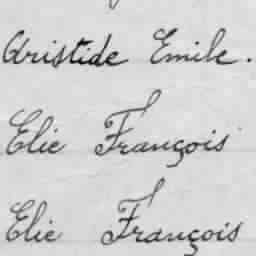 Aristide Emile.
Elie François
Elie François